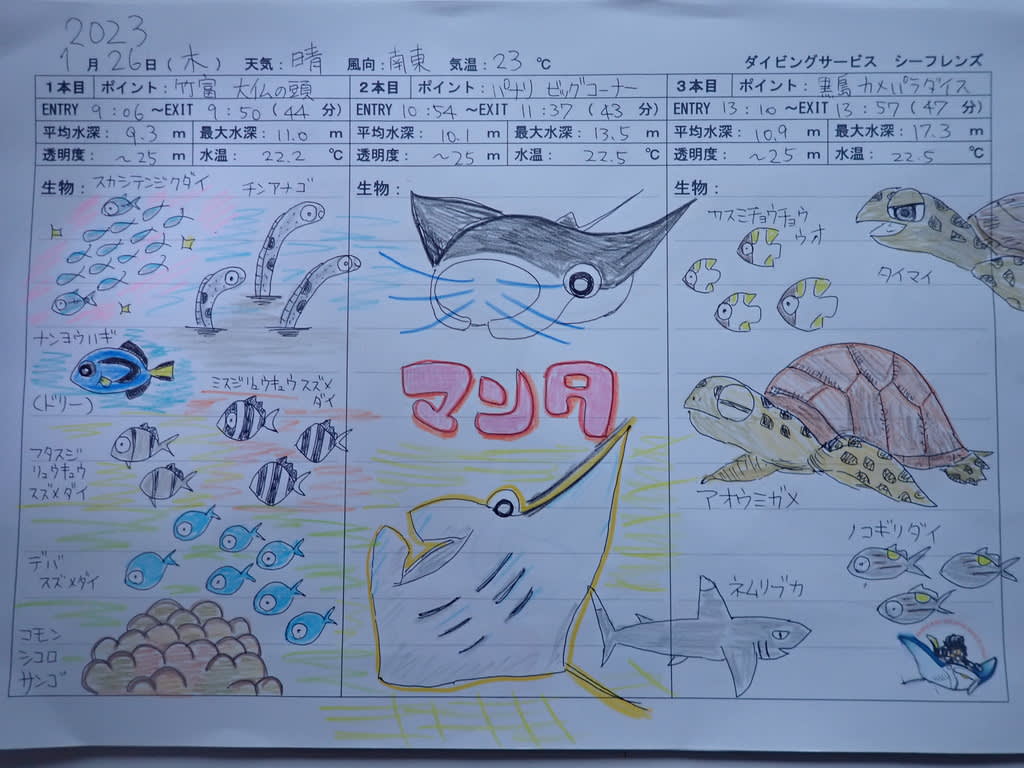 2023
1月26日(木) 天気:晴 風向:南東 気温:23℃ ダイビングサービス シーフレンズ
1本目 ポイント:竹富 大仏の頭
ENTRY 9:06 ~EXIT 9:50 (44 分)
平均水深: 9.3 m 最大水深: 11.0 m
透明度: ~25 m 水温: 22.2 ℃
生物:スカシテンジクダイ
チンアナゴ
ナンヨウハギ
(ドリー)
ミスジリュウキュウスズメ
ダイ
フタスジ
リュウキュウ
スズメダイ
デバ
スズメダイ
コモン
シコロ
サンゴ
2本目 ポイント:パナリ ビッグコーナー
ENTRY 10:54 ~EXIT 11:37 (43 分)
平均水深: 10.1 m 最大水深: 13.5 m
透明度: ~25 m 水温: 22.5 ℃
生物:
マンタ
3本目 ポイント:黒島 カメパラダイス
ENTRY 13:10 ~EXIT 13:57 (47 分)
平均水深: 10.9 m 最大水深: 17.3 m
透明度: ~25 m 水温: 22.5 ℃
生物:
カスミチョウチョウ
ウオ
タイマイ
アオウミガメ
ノコギリダイ
ネムリブカ